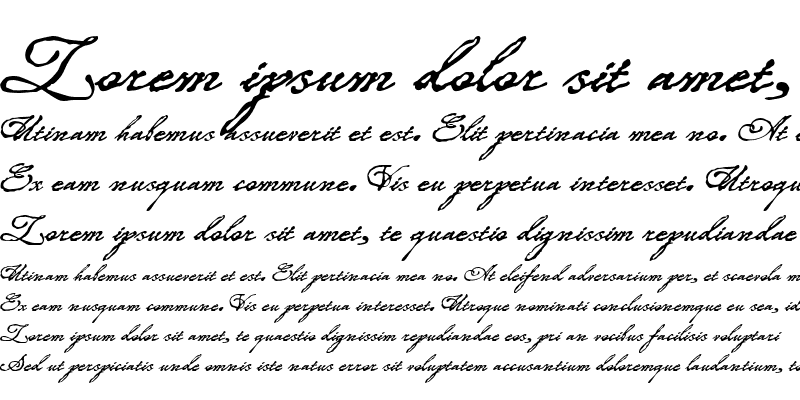 Lorem ipsum dolor sit amet,
Utinam habemus assueverit et est. Elit pertinacia mea no. At e
Ex eam nusquam commune. Vis eu perpetua interesset. Utroqu
Lorem ipsum dolor sit amet, te quaestio dignissim repudiandae
Utinam habemus assueverit et est. Elit pertinacia mea no. At eleifend adversarium per, et scaevola m
Ex eam nusquam commune. Vis eu perpetua interesset. Utroque nominati conclusionemque eu sea, id
Lorem ipsum dolor sit amet, te quaestio dignissim repudiandae eos, pri an vocibus facilisis voluptari
Sed ut perspiciatis unde omnis iste natus error sit voluptatem accusantium doloremque laudantium, to